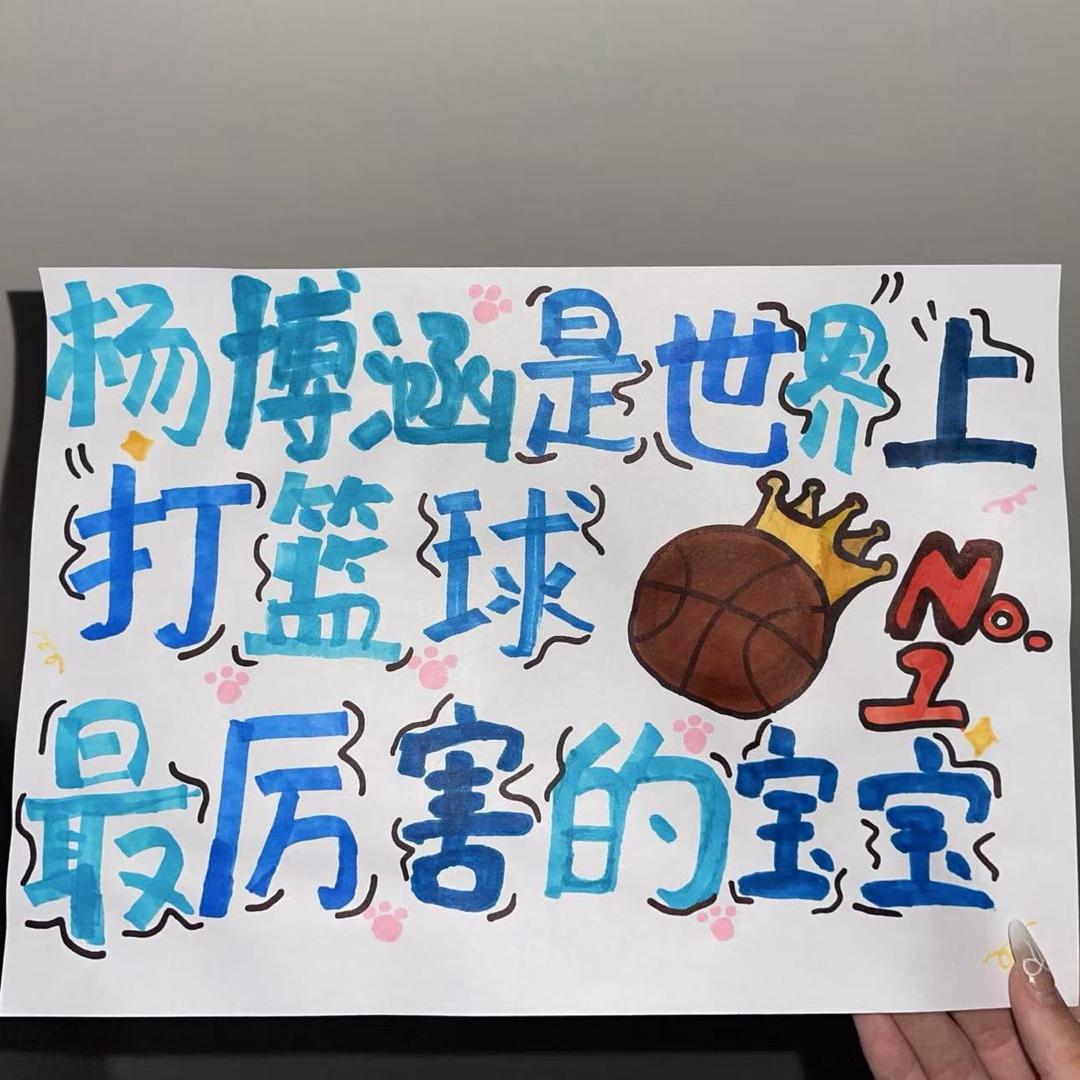 杨博涵是世界上
打篮球
No.
1
最厉害的宝宝